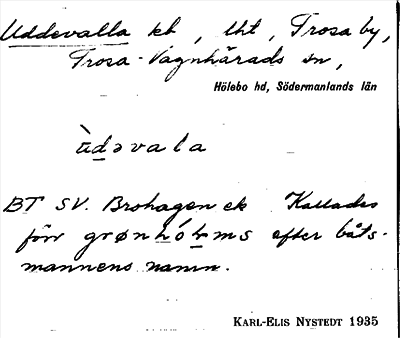 Uddevalla kh, lht, Trosa by,
Trosa-Vagnhärads sn,
Hölebo hd, Södermanlands län
ùdəvala
BT SV. Brohagen ek Kallades
förr grønhólms efter båts-
mannens namn.
KARL-ELIS NYSTEDT 1935